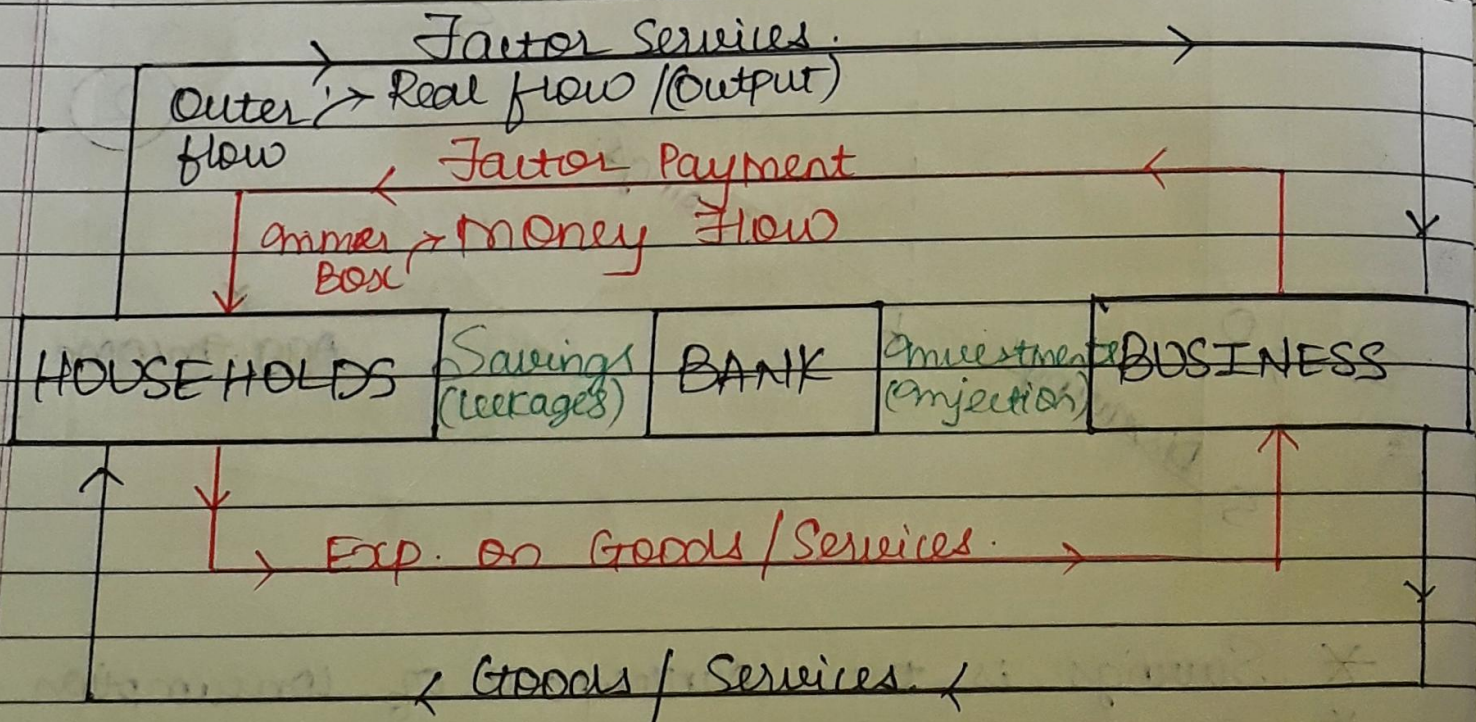 Factor Services.
Outer → Real flow / (Output)
flow
Factor Payment
Inner → Money Flow
Box
HOUSEHOLDS
Savings
(Leekages)
BANK
Investments
(Injection)
BUSINESS
Exp. on Goods / Services.
Goods / Services.